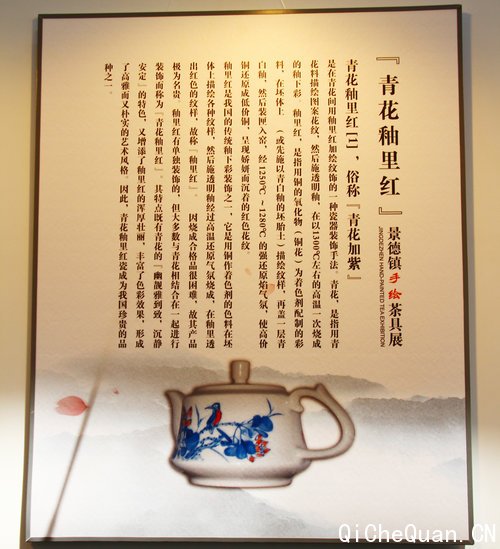 『青花釉里红』
景德镇手绘茶具展
JINGDEZHEN HAND-PAINTED TEA EXHIBITION
青花釉里红【一】，俗称『青花加紫』
是在青花间用釉里红加绘纹饰的一种瓷器装饰手法。青花，是指用青
花料描绘图案花纹，然后施透明釉，在以1300℃左右的高温一次烧成
的釉下彩。釉里红，是指用铜的氧化物（铜花）为着色剂配制的彩
料，在坯体上（或先施以青白釉的坯胎土）描绘纹样，再盖一层青
白釉，然后装匣入窑，经1250℃~1280℃的强还原焰气氛，使高价
铜还原成低价铜，呈现娇妍而沉着的红色花纹。
釉里红是我国的传统釉下彩装饰之一，它是用铜作着色剂的色料在坯
体上描绘各种纹样，然后施透明釉经过高温还原气氛烧成，在釉里透
出红色的纹样，故称『釉里红』。因烧成合格品很困难，故其产品
极为名贵　釉里红有单独装饰的，但大多数与青花相结合在一起进行
装饰而称为『青花釉里红』。其特点既有青花的『幽靓雅到致，沉静
安定』的特色，又增添了釉里红的浑厚壮丽，丰富了色彩效果，形成
了高雅而又朴实的艺术风格。因此，青花釉里红瓷成为我国珍贵的品
种之一。
QiCheQuan.CN